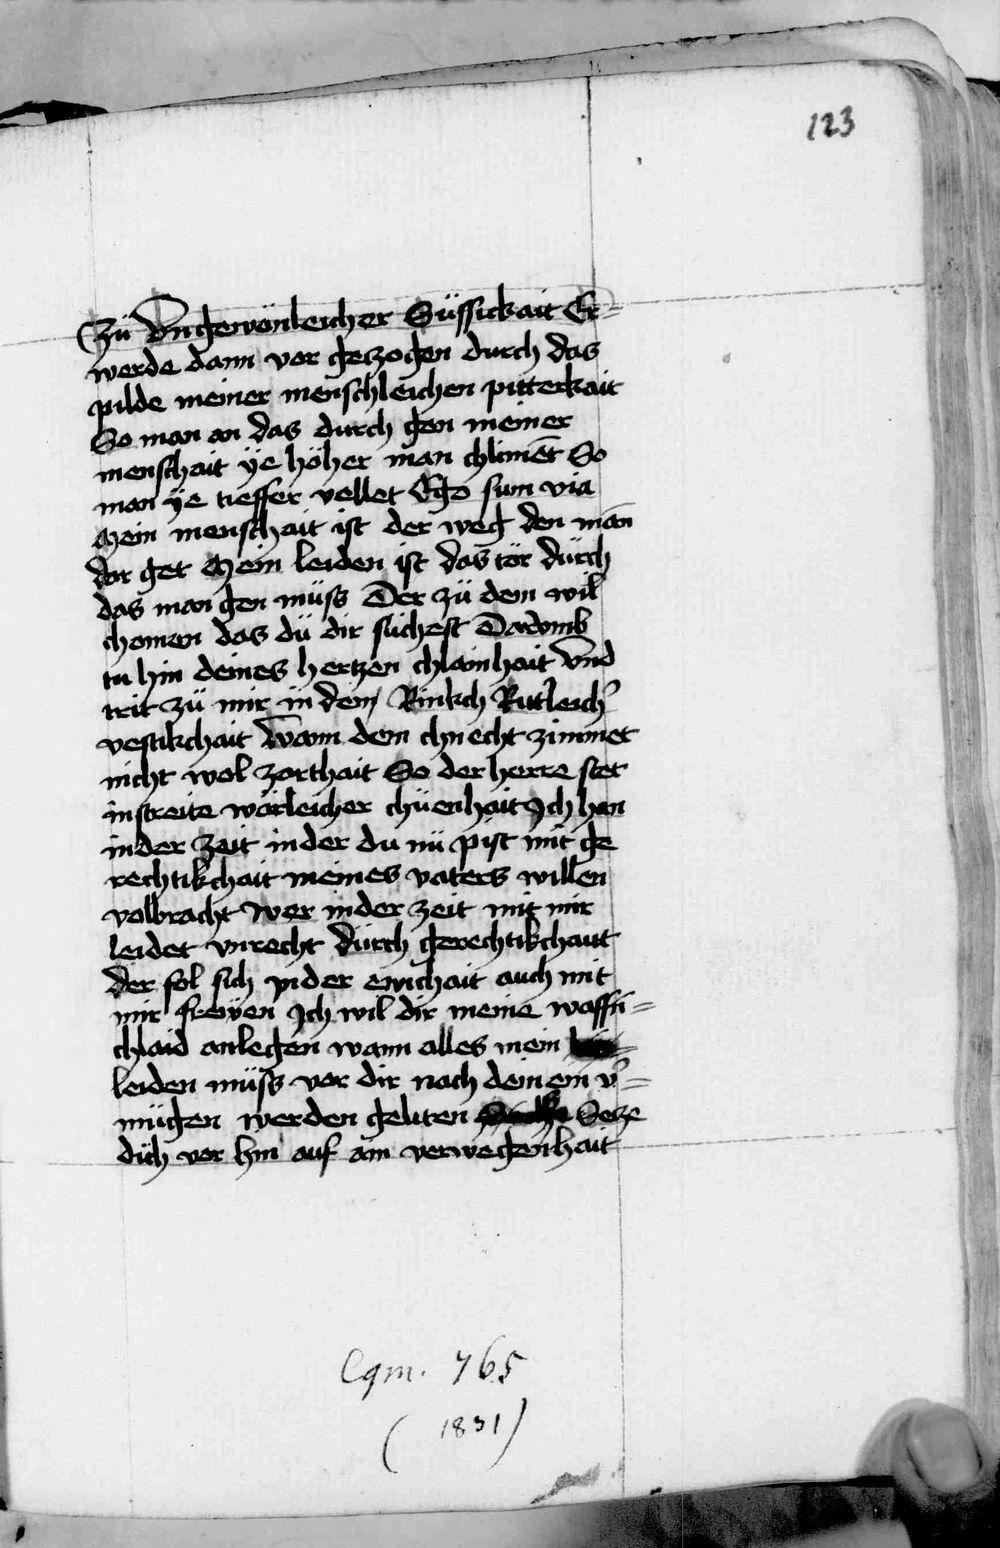 123
Zü Vngewönleicher Süssickait Er=
werde dann vor gezogen durch das
pilde meiner menschleichen pitterkait
So man an das durch gen meiner
menschait ÿe höher man chlimēt So
man ÿe tieffer vellet Ego sum via
Mein menschait ist der weg den man
dar get Mein leiden ist das tör dürch
das man gen müss Der zü dem wil
chomen das dü dir süchest Darvmb
tu hin deines hertzen chlainhait Vnd
trit zü mir in dem Rinkch Ritleich̾
vestikchait Wann dem chnecht zimmet
nicht wol zorthait So der herre stet
in streite wörleicher chüenhait Ich han
in der zeit in der du nü pist mit ge
rechtikchait meines vaters willen
volbracht Wer in der zeit mit mir
leidet vnrecht dürch gerechtikchait
der sol sich in der ewichait auch mit
mir freẅen Ich wil dir meine waffn̄=
chlaid anlegen wann alles mein
leiden müss vor dir nach deinem v̾=
mügen werden geliten Secze
dich vor hin auf ain verwegenhait
Cgm. 765
(1831)